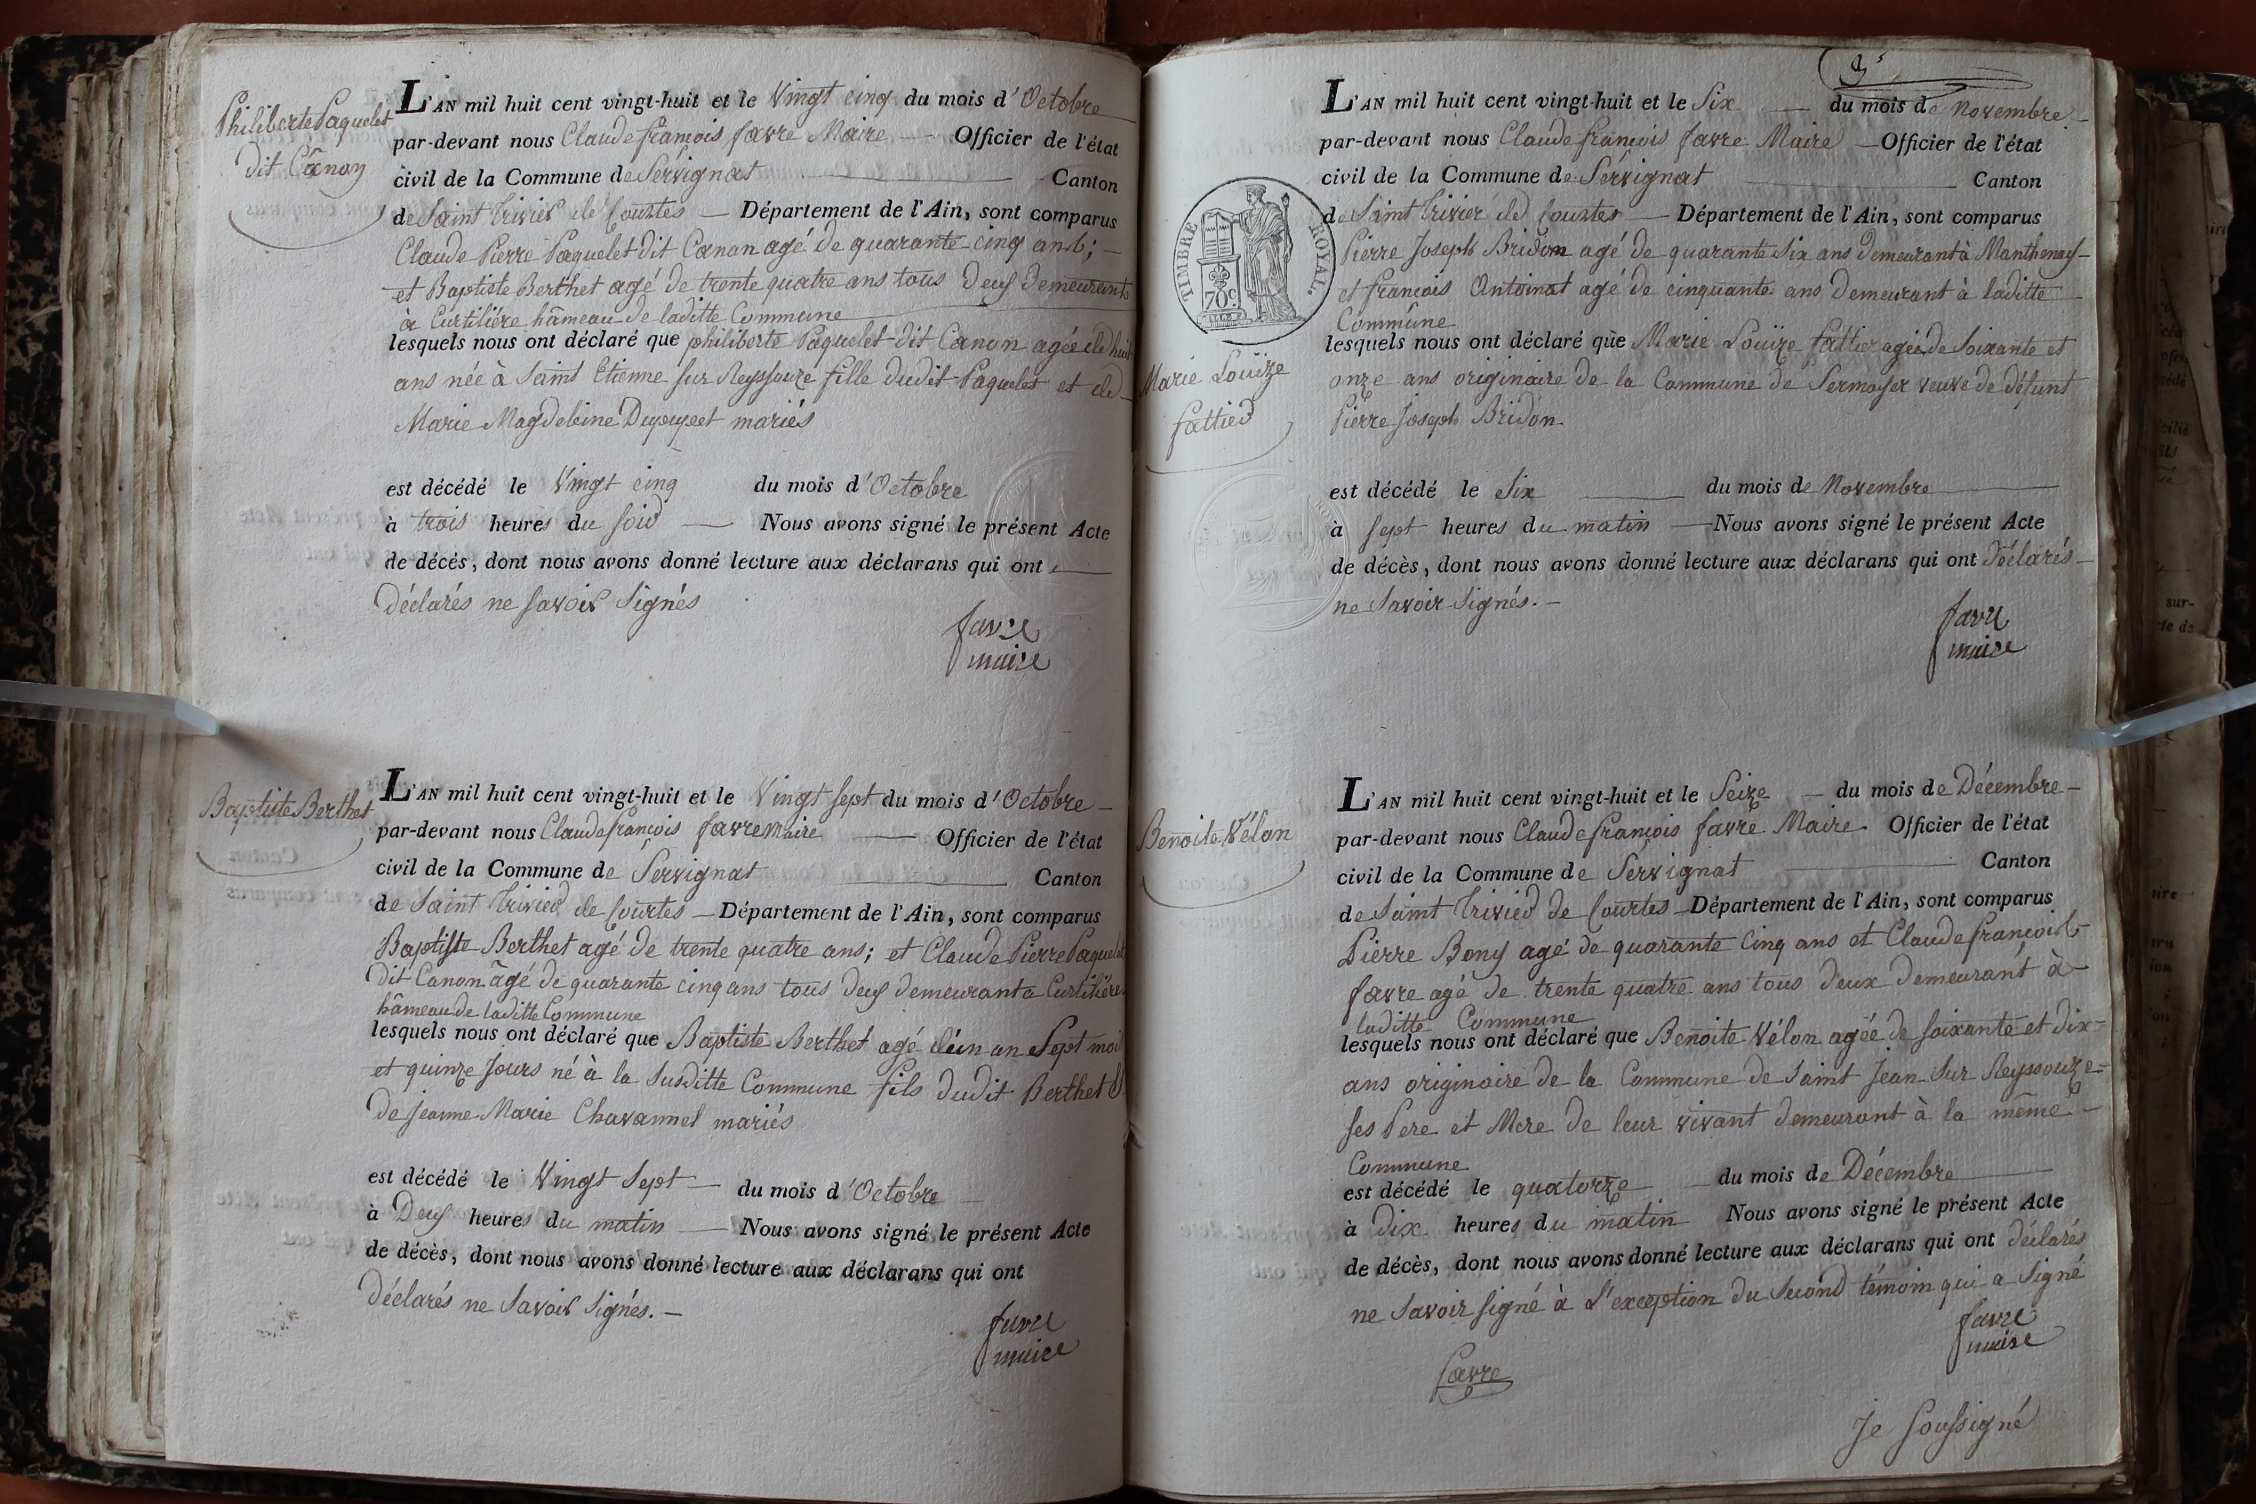 Philiberte Paquelet
dit Canon
L'AN mil huit cent vingt-huit et le Vingt cinq du mois d'Octobre
par-devant nous Claude françois favre Maire Officier de l'état
civil de la Commune de Servignat Canton
de Saint Trivier de Courtes Département de l'Ain, sont comparus
Claude Pierre Paquelet dit Canon agé de quarante cinq ans;
et Baptiste Berthet agé de trente quatre ans tous Deux demeurant
à Curtilière hâmeau de laditte Commune
lesquels nous ont déclaré que philiberte Paquelet dit Canon agée de huit
ans née à Saint Etienne sur Reyssouze fille dudit Paquelet et de
Marie Magdeleine mariés
est décédé le Vingt cinq du mois d'Octobre
à trois heures du soir Nous avons signé le présent Acte
de décès, dont nous avons donné lecture aux déclarans qui ont
Déclarés ne savoir signés
favre
maire
Baptiste Berthet
L'AN mil huit cent vingt-huit et le Vingt sept du mois d'Octobre
par-devant nous Claude françois favre maire Officier de l'état
civil de la Commune de Servignat Canton
de Saint Trivier de Courtes Département de l'Ain, sont comparus
Baptiste Berthet agé de trente quatre ans; et Claude Pierre Paquelet
dit Canon âgé de quarante cinq ans tous Deux demeurant a Curtilière
hâmeau de laditte Commune
lesquels nous ont déclaré que Baptiste Berthet agé d'un an Sept mois
et quinze Jours né à la Susditte Commune fils dudit Berthet &
de jeanne Marie Chavannel mariés
est décédé le Vingt Sept du mois d'Octobre
à Deux heures du matin Nous avons signé le présent Acte
de décès, dont nous avons donné lecture aux déclarans qui ont
Déclarés ne savoir signés.
favre
maire
L'AN mil huit cent vingt-huit et le Six du mois de Novembre
par-devant nous Claude françois favre Maire Officier de l'état
civil de la Commune de Servignat Canton
de Saint Trivier de Courtes Département de l'Ain, sont comparus
Pierre Joseph Bridon agé de quarante Six ans demeurant à Manthenay
et françois Antoinat agé de cinquante ans demeurant à laditte
Commune
TIMBRE ROYAL.
70c.
Marie Louize
fattier
lesquels nous ont déclaré que Marie Louize fattier agée de Soixante et
onze ans originaire de la Commune de Sermoyer veuve de défunt
Pierre Joseph Bridon
est décédé le Six du mois de Novembre
à sept heures du matin Nous avons signé le présent Acte
de décès, dont nous avons donné lecture aux déclarans qui ont Déclarés
ne savoir signés.
favre
maire
Benoite Vélon
L'AN mil huit cent vingt-huit et le Seize du mois de Décembre
par-devant nous Claude françois favre Maire Officier de l'état
civil de la Commune de Servignat Canton
de Saint Trivier de Courtes Département de l'Ain, sont comparus
Pierre Bony agé de quarante Cinq ans et Claude françois
favre agé de trente quatre ans tous Deux demeurant à
laditte Commune
lesquels nous ont déclaré que Benoite Vélon agée de soixante et dix
ans originaire de la Commune de Saint Jean Sur Reyssouze
ses Pere et Mere de leur vivant demeurant à la même
Commune
est décédé le quatorze du mois de Décembre
à Dix heures du matin Nous avons signé le présent Acte
de décès, dont nous avons donné lecture aux déclarans qui ont déclarés
ne savoir signé à L'exception du Second témoin qui a Signé
favre
maire
favre
Je Soussigné